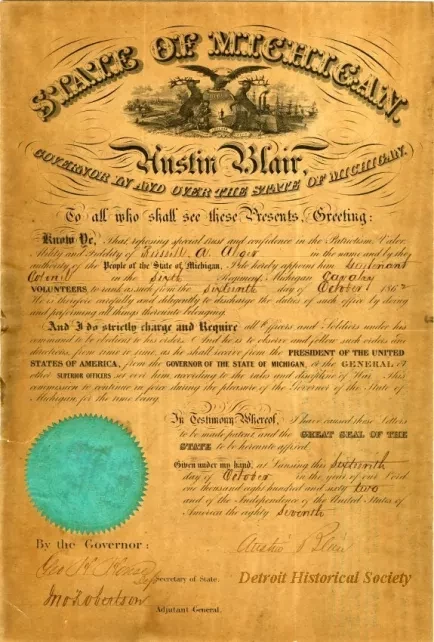 STATE OF MICHIGAN.
Austin Blair,
GOVERNOR IN AND OVER THE STATE OF MICHIGAN.
To all who shall see these Presents, Greeting:
Know Ye, That reposing special trust and confidence in the Patriotism, Valor,
Ability and Fidelity of Russell A. Alger in the name and by the
authority of the People of the State of Michigan, I do hereby appoint him Lieutenant
Colonel in the Sixth Regiment Michigan Cavalry
VOLUNTEERS to rank as such from the Sixteenth day of October 1862
He is therefore carefully and diligently to discharge the duties of such office by doing
and performing all things thereunto belonging.
And I do strictly charge and Require all Officers and Soldiers under his
command to be obedient to his orders. And he is to observe and follow such orders and
directions, from time to time, as he shall receive from the PRESIDENT OF THE UNITED
STATES OF AMERICA, from the GOVERNOR OF THE STATE OF MICHIGAN, or the GENERAL or
other SUPERIOR OFFICERS set over him, according to the rules and discipline of War. This
commission to continue in force during the pleasure of the Governor of the State of
Michigan for the time being.
In Testimony Whereof, I have caused these Letters
to be made patent, and the GREAT SEAL OF THE
STATE to be hereunto affixed.
Given under my hand, at Lansing this Sixteenth
day of October in the year of our Lord
one thousand eight hundred and sixty two
and of the Independence of the United States of
America the eighty Seventh
By the Governor:
Austin Blair
Secretary of State.
Detroit Historical Society
Jno Robertson
Adjutant General.